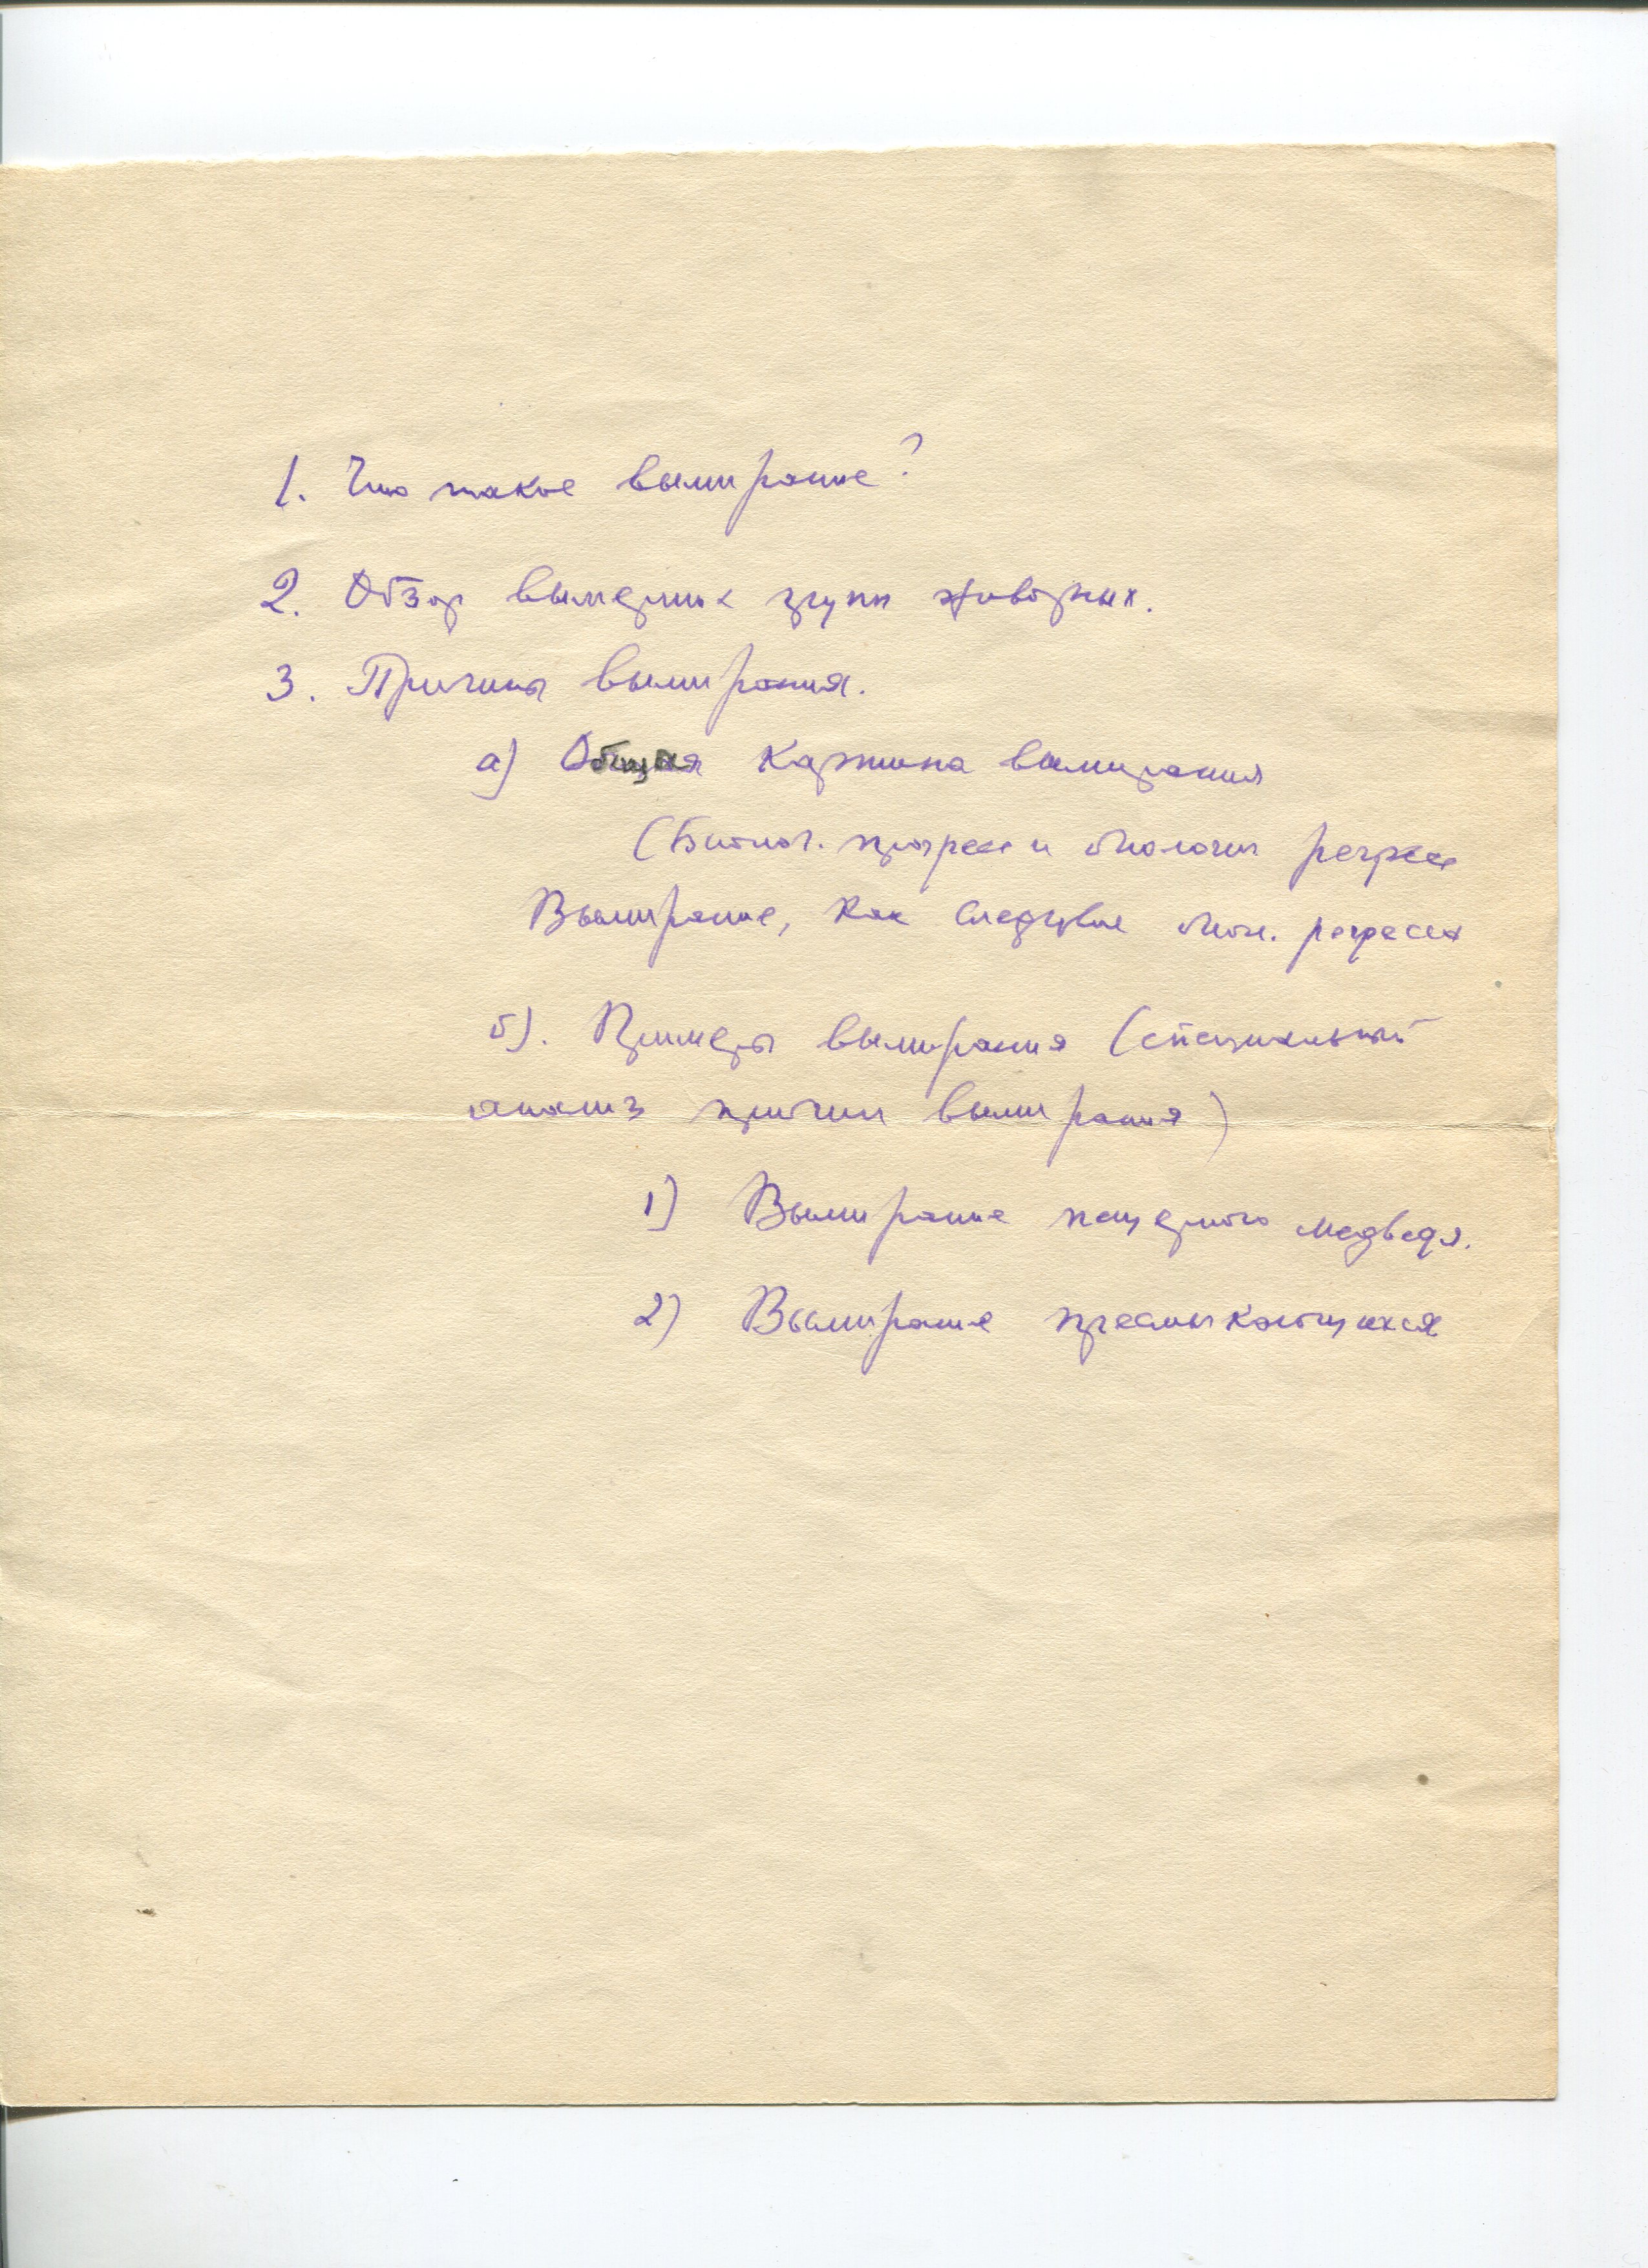 1. Что такое вымирание?
2. Обзор вымерших групп животных.
3. Причины вымирания.
а) Общая картина вымирания
(Биолог. прогресс и биологич регресс
Вымирание, как следствие биол. регресса
б). Примеры вымирания (специальный
анализ причин вымирания)
1) Вымирание пещерного медведя.
2) Вымирание пресмыкающихся